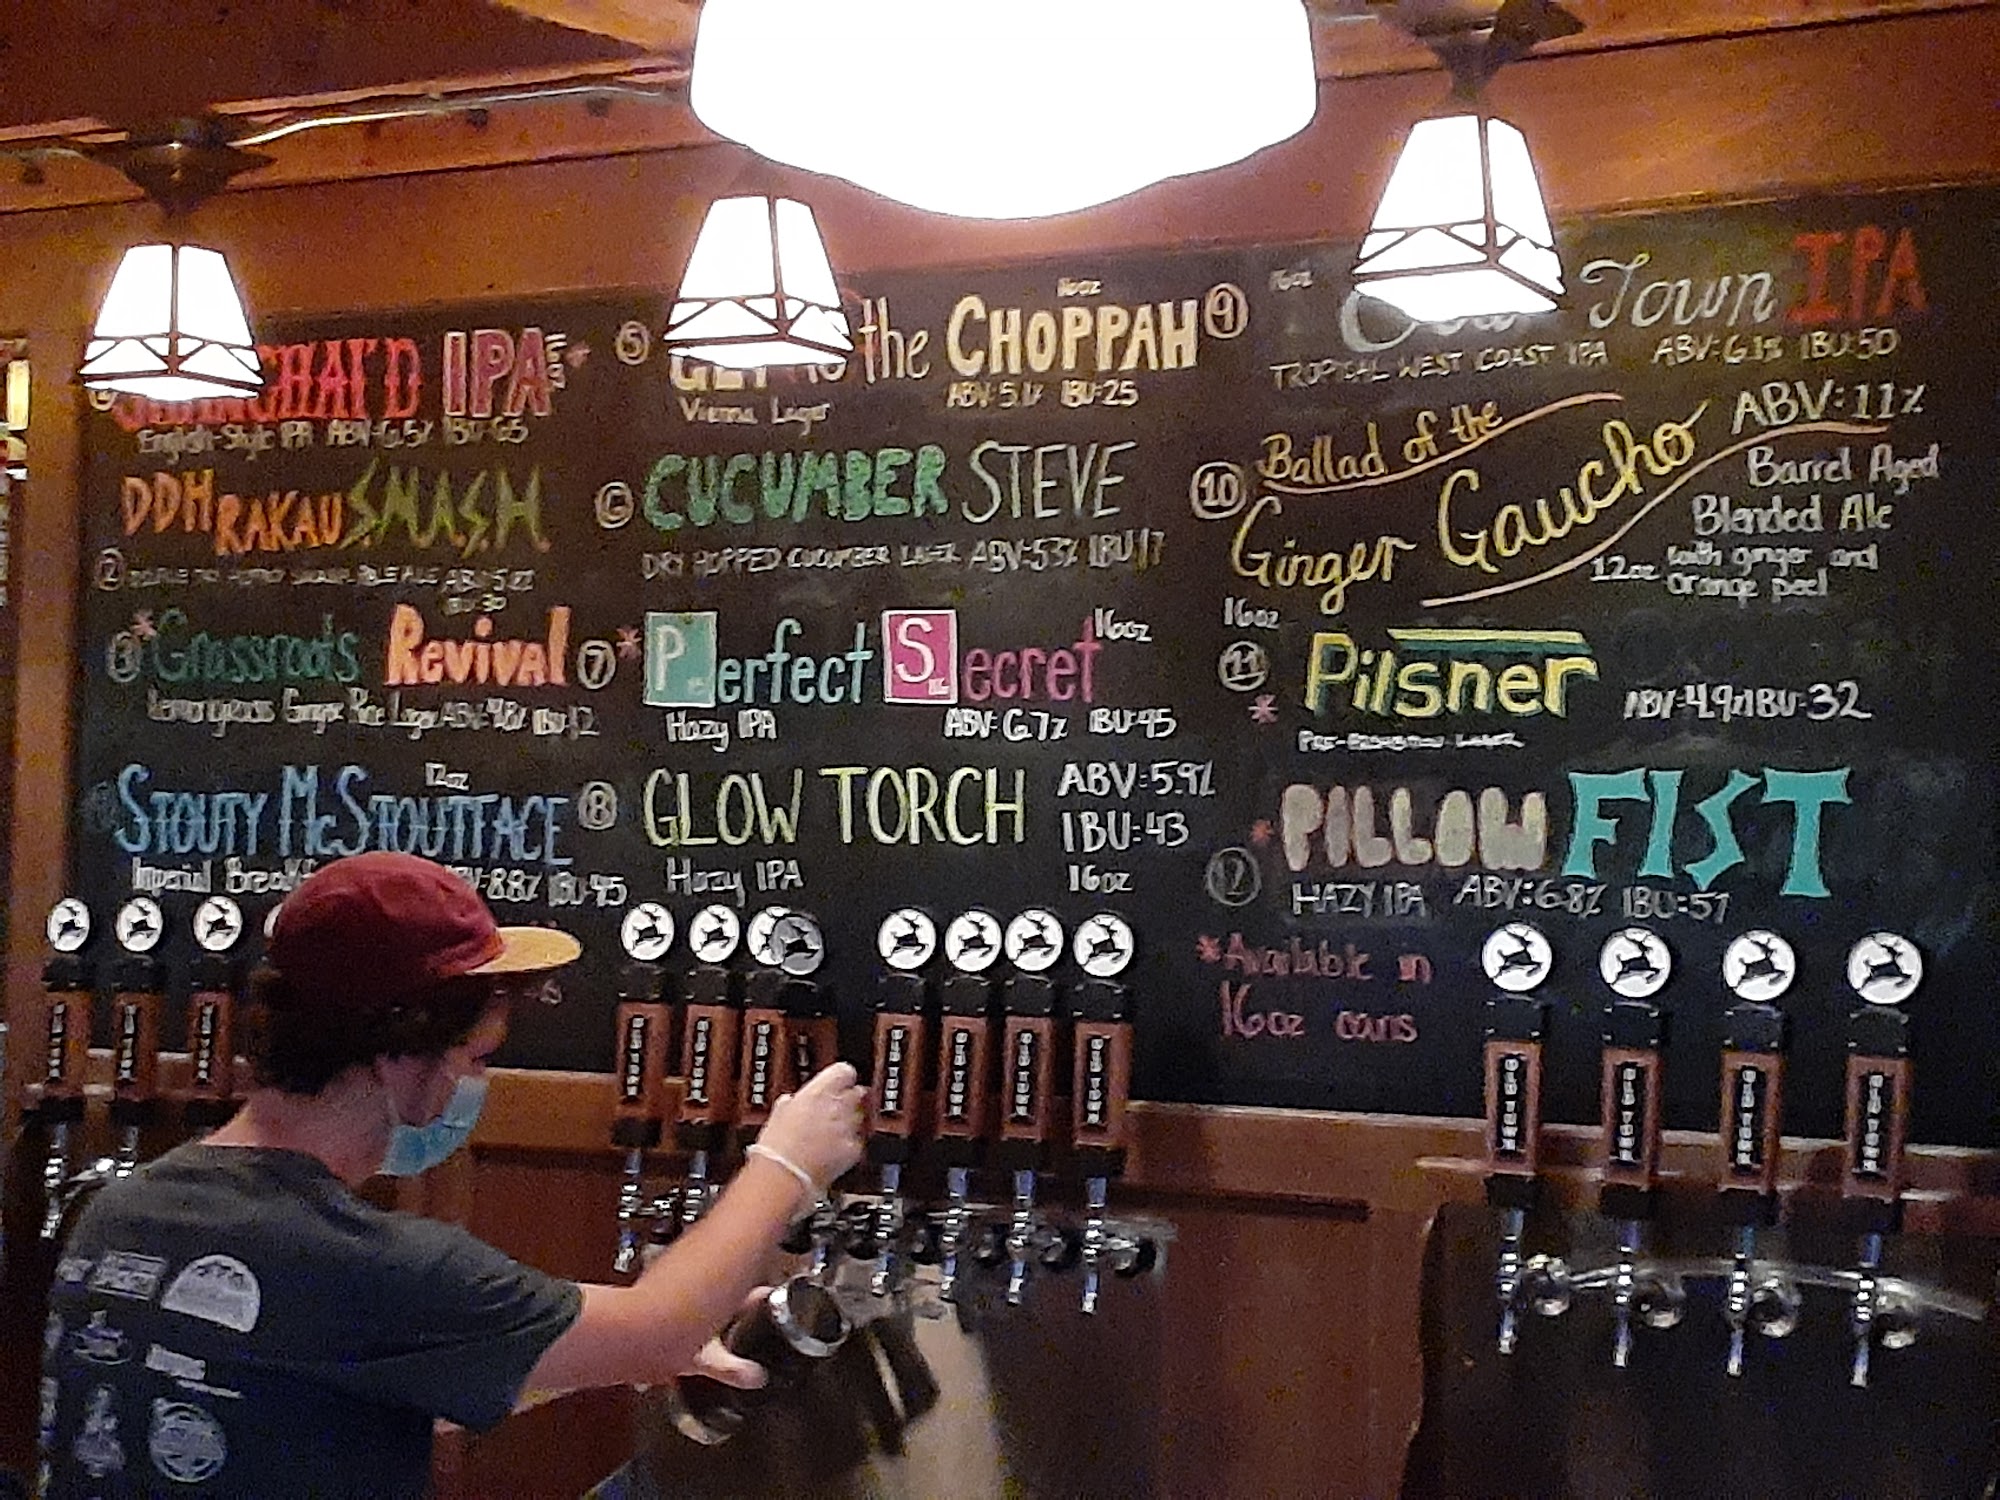 SHANGHAI'D IPA
English-Style IPA ABV:6.5% IBU:65
DDH RAKAU S.M.A.S.H.
2
PALE ALE ABV:5.8%
IBU:30
3 * Grassroots Revival
Lemongrass Ginger Rice Lager ABV:4.8% IBU:12
12oz
STOUTY McSTOUTFACE
Imperial 8.8% IBU:45
16oz
5 the CHOPPAH
Vienna Lager ABV:5.1% IBU:25
6 CUCUMBER STEVE
DRY HOPPED CUCUMBER LAGER ABV:5.3% IBU 17
7 * Perfect Secret 16oz
Hazy IPA ABV:6.7% IBU:45
8 GLOW TORCH ABV:5.9%
IBU:43
Hazy IPA 16oz
9 16oz Town IPA
TROPICAL WEST COAST IPA ABV:6.1% IBU:50
10 Ballad of the
Ginger Gaucho ABV:11%
Barrel Aged
Blended Ale
12oz with ginger and
orange peel
16oz
11 * Pilsner ABV:4.9% IBU:32
PRE-PROHIBITION LAGER
12 * PILLOW FIST
HAZY IPA ABV:6.8% IBU:51
*Available in
16oz cans
OLD TOWN
OLD TOWN
OLD TOWN
OLD TOWN
OLD TOWN
OLD TOWN
OLD TOWN
OLD TOWN
OLD TOWN
OLD TOWN
OLD TOWN